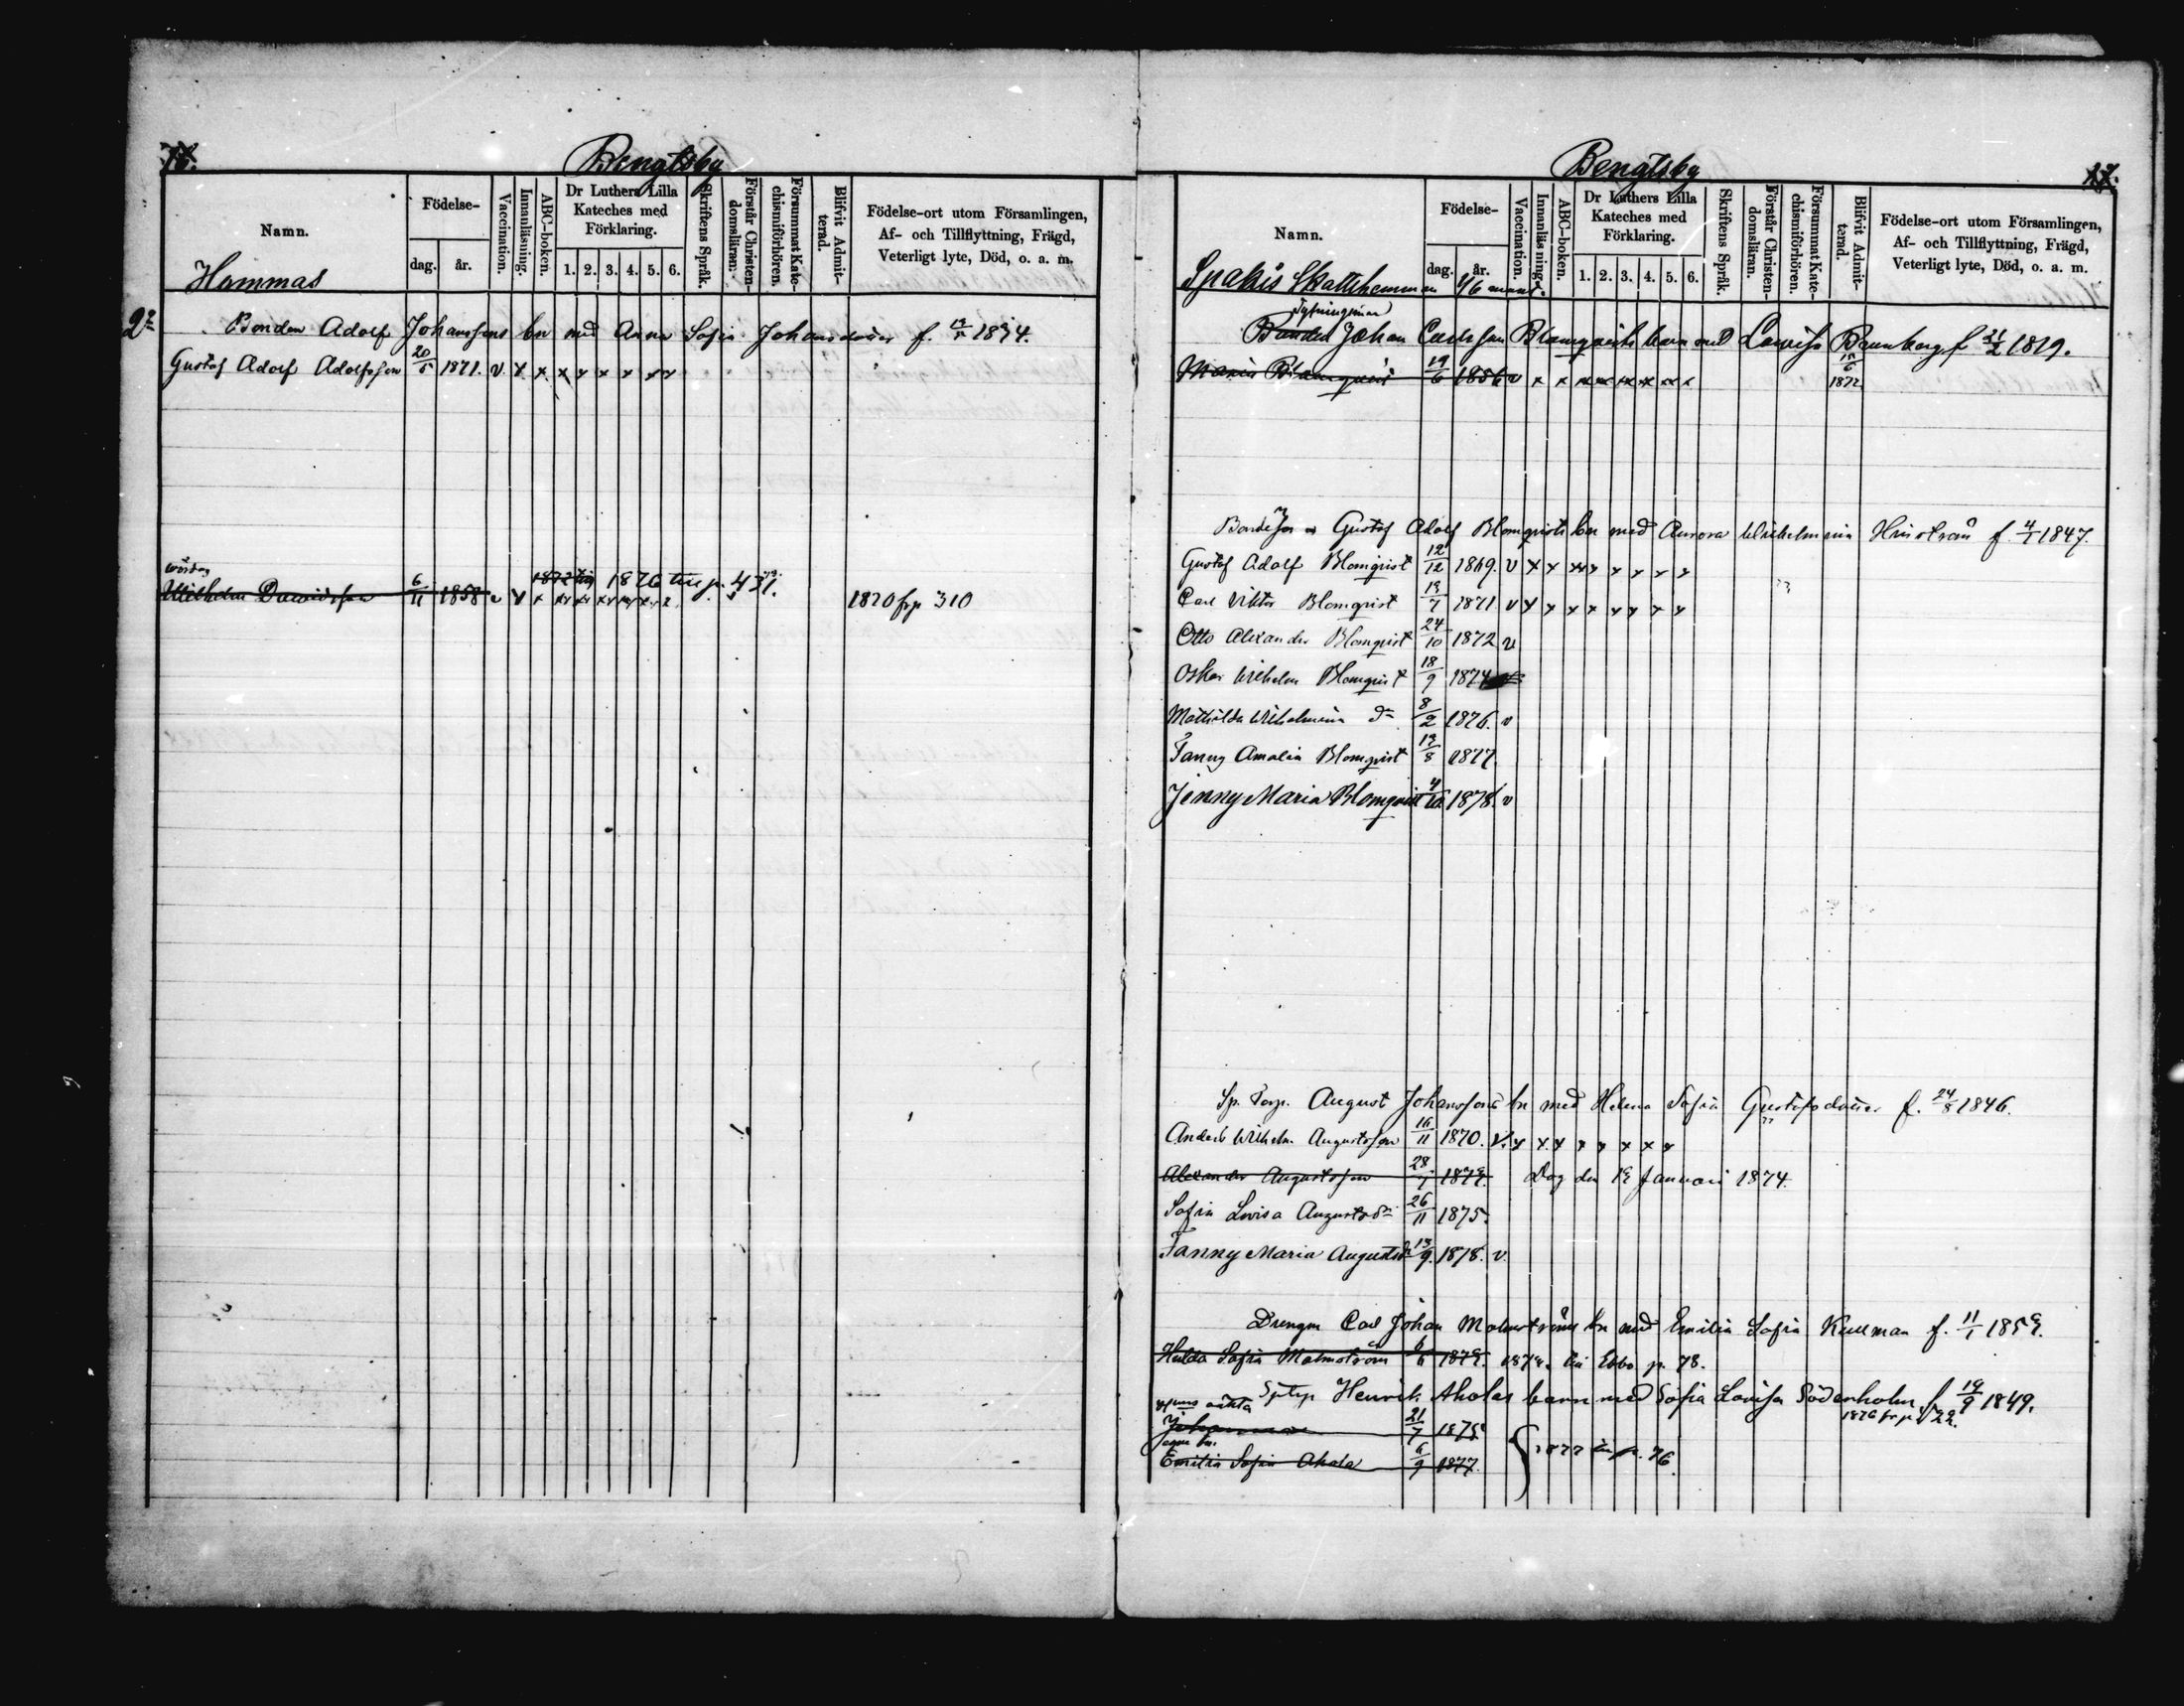 16.
Bengtsby
Namn.
Födelse-
dag. år.
Vaccination.
Innanläsning.
ABC-boken.
Dr Luthers Lilla Kateches med Förklaring.
1. 2. 3. 4. 5. 6.
Skriftens Språk.
Förstår Christendomsläran.
Försummat Katechismiförhören.
Blifvit Admitterad.
Födelse-ort utom Församlingen, Af- och Tillflyttning, Frägd, Veterligt lyte, Död, o. a. m.
Hammas
Bonden Adolf Johanssons bn med Anna Sofia Johansdotter f. 1834.
Gustaf Adolf Adolfsson 20/5 1871. v x x x x x x x x
1876 till p. 431.
Wilhelm Davidsson 6/11 1858 v x x x x x x x x 1870 frp 310
17.
Bengtsby
Namn.
Födelse-
dag. år.
Vaccination.
Innanläsning.
ABC-boken.
Dr Luthers Lilla Kateches med Förklaring.
1. 2. 3. 4. 5. 6.
Skriftens Språk.
Förstår Christendomsläran.
Försummat Katechismiförhören.
Blifvit Admitterad.
Födelse-ort utom Församlingen, Af- och Tillflyttning, Frägd, Veterligt lyte, Död, o. a. m.
Spakis Skattehemman 1/6 mant.
Bonden Johan Carlsson Blomqvists barn med Lovisa f 1819.
Maria Blomqvist 19/6 1856 v x x x x x x x x 15/6 1872
Gustaf Adolf Blomqvists bn med Aurora Wilhelmina f. 4/1 1847.
Gustaf Adolf Blomqvist 12/12 1869. v x x x x x x x x
Carl Viktor Blomqvist 1871 v x x x x x x x x
Otto Alexander Blomqvist 24/10 1872 v
Oskar Wilhelm Blomqvist 18/9 1874
Mathilda Wilhelmina d:o 8/2 1876. v
Fanny Amalia Blomqvist 1877
Jenny Maria Blomqvist 1878. v
Sp. Torp. August Johanssons bn med Helena Sofia Gustafsdotter f. 24/8 1846.
Anders Wilhelm Augustsson 16/11 1870. v. x x x x x x x
Alexander Augustsson 28/1 187 Dog den 19 Januari 1874.
Sofia Lovisa Augustsd:r 26/11 1875.
Fanny Maria Augustsd:r 13/9. 1878. v.
Drengen Carl Johan Malmströms bn med Emilia Sofia Kullman f. 11/1 185
Hulda Sofia Malmström 6/6 1879. till Ebbo p. 78.
Henrik Aholas barn med Sofia Lovisa Söderholm f 19/9 1849.
21/7 1875
Emilia Sofia Ahola 6/9 1877. 1877 p. 76.